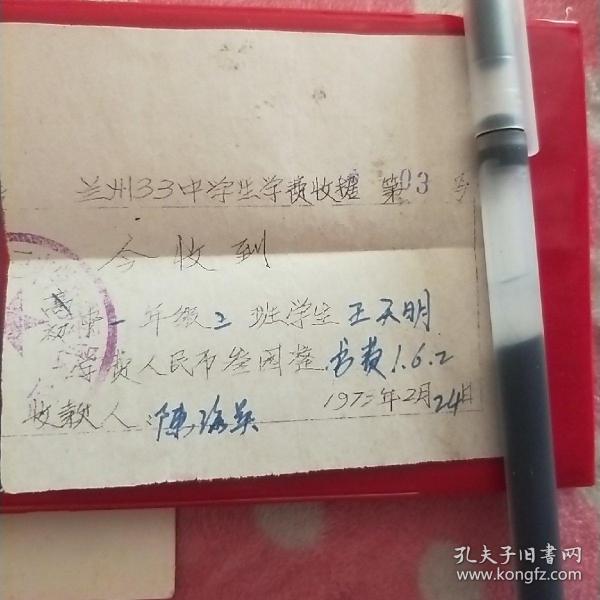 兰州33中学生学费收据 第03号
今收到
高
初中一年级二班学生王天明
学费人民币叁圆整 书费1.6.2
收款人:陈瑞英
1972年2月24日
孔夫子旧书网
www.kongfz.com